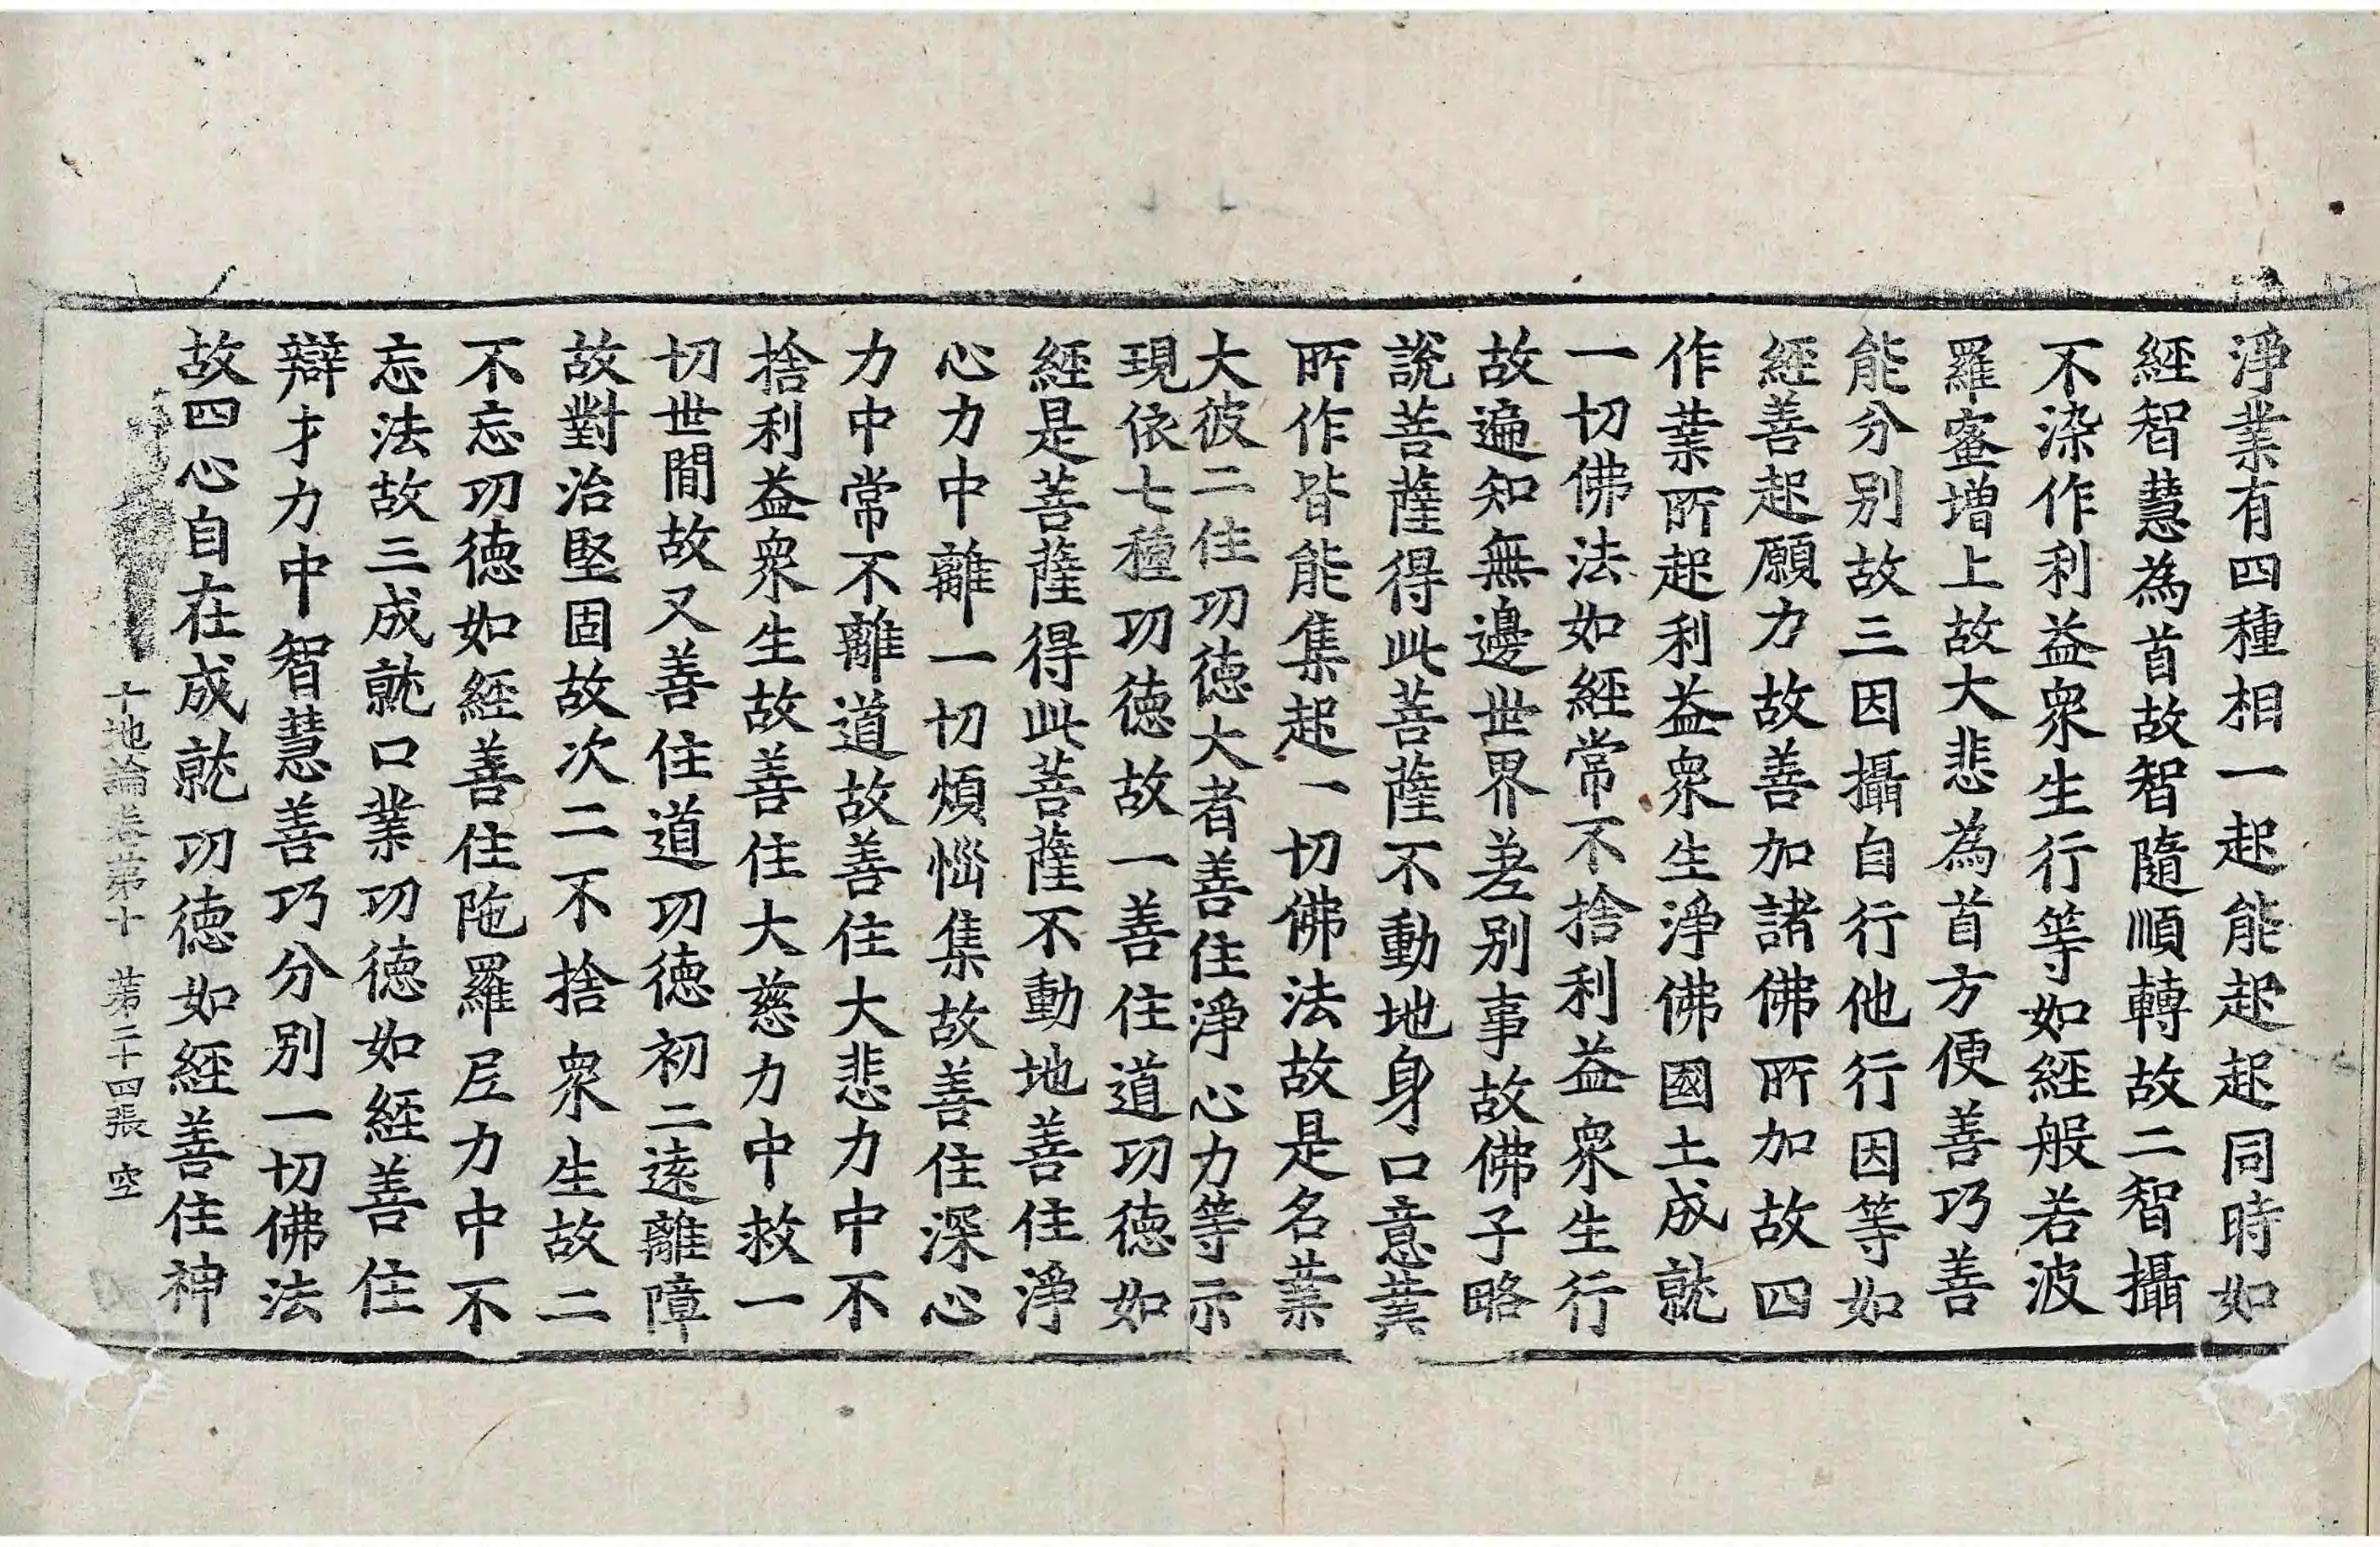 淨業有四種相一起能起起同時如
經智慧為首故智隨順轉故二智攝
不染作利益衆生行等如經般若波
羅蜜增上故大悲為首方便善巧善
能分別故三因攝自行他行因等如
經善起願力故善加諸佛所加故四
作業所起利益衆生淨佛國土成就
一切佛法如經常不捨利益衆生行
故遍知無邊世界差別事故佛子略
說菩薩得此菩薩不動地身口意業
所作皆能集起一切佛法故是名業
大彼二住功德大者善住淨心力等示
現依七種功德故一善住道功德如
經是菩薩得此菩薩不動地善住淨
心力中離一切煩惱集故善住深心
力中常不離道故善住大悲力中不
捨利益衆生故善住大慈力中救一
切世間故又善住道功德初二遠離障
故對治堅固故次二不捨衆生故二
不忘功德如經善住陁羅尼力中不
忘法故三成就口業功德如經善住
辯才力中智慧善巧分別一切佛法
故四心自在成就功德如經善住神
十地論卷第十 第二十四張 空